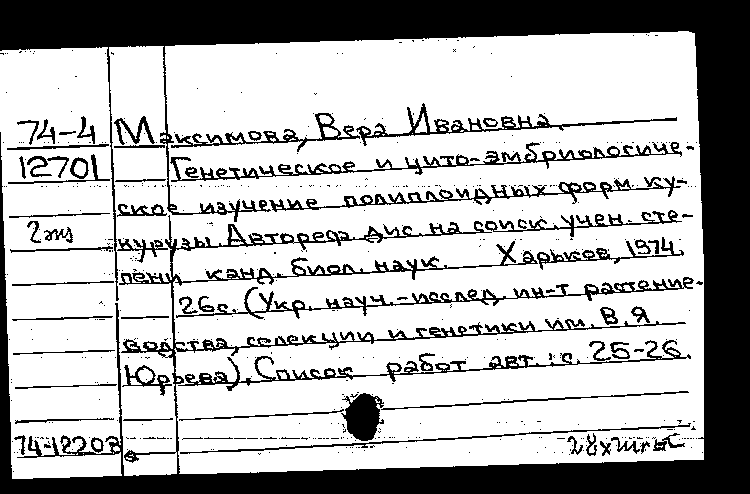 74-4 Максимова, Вера Ивановна.
12701 Генетическое и цито-эмбриологиче-
ское изучение полиплоидных форм ку-
2 экз курузы. Автореф. дис. на соиск. учен. сте-
пени канд. биол. наук. Харьков, 1974.
26с. (Укр. науч.-исслед. ин-т растение-
водства, селекции и генетики им. В.Я.
Юрьева). Список работ авт.: с. 25-26.
74-12208